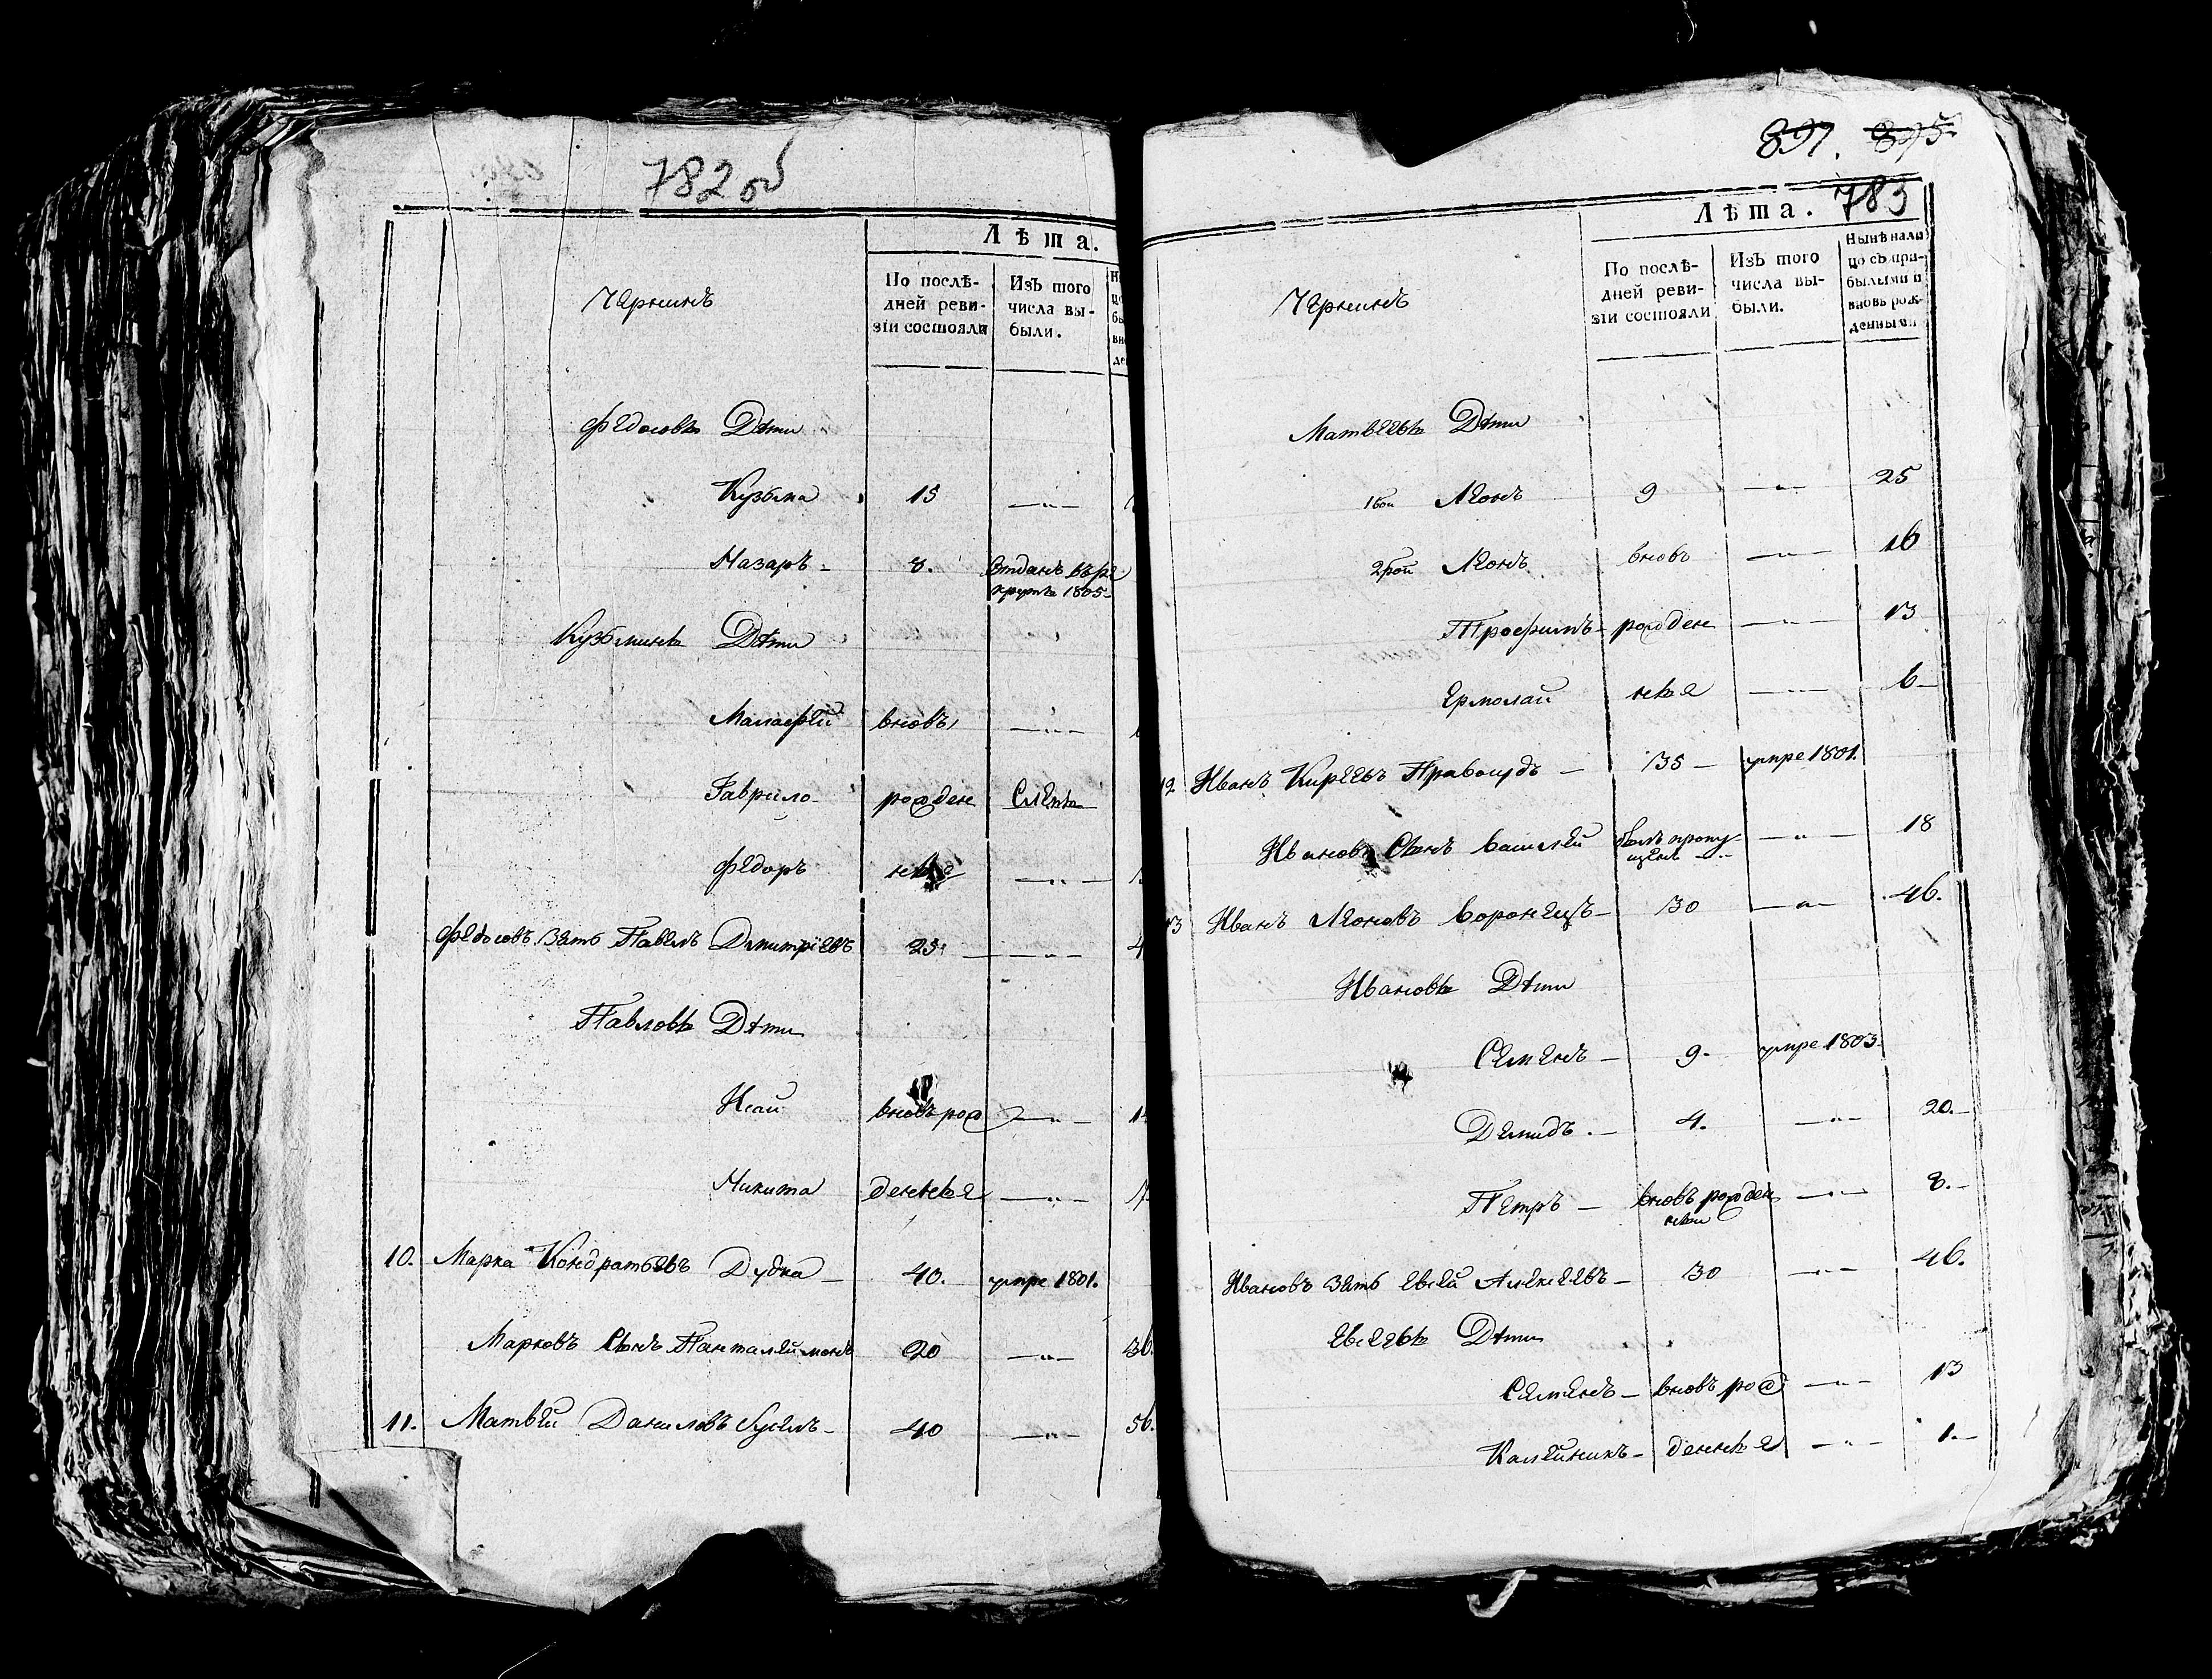 782 об
Лѣта.
Чернинъ
По послѣ-
дней реви-
зіи состояли
Изъ того
числа вы-
были.
Федосовы Дѣти
Кузьма 15 —„—
Назаръ - 8. Отданъ въ ре
круты 1805
Кузьмины Дѣти
Малафей вновь —„—
Гаврило рожден Слепъ
Федоръ —„—
Федосовъ Зять Павелъ Дмитріевъ 25 —„—
Павловы Дѣти
Исай вновь рож —„—
Никита денные —„—
10. Марка Кондратьевъ Дудка - 40. умре 1801.
Марковъ Сынъ Панталеймонъ 20 —„— 36.
11. Матвей Даниловъ - 40 —„— 56.
897. 895
783
Лѣта.
Чернинъ
По послѣ-
дней реви-
зіи состояли
Изъ того
числа вы-
были.
Нынѣ нали
цо съ при-
былыми и
вновь рож-
денными
Матвеевы Дѣти
1вой Леонъ 9 —„— 25
2рой Леонъ вновь —„— 16
Трофимъ - рожден —„— 13
Ермолай ные —„— 6 -
12 Иванъ Киреевъ - 35 - умре 1801.
Ивановъ Сынъ Василей былъ пропу
щенъ —„— 18
13 Иванъ Леоновъ Воронецъ - 30 —„— 46.
Ивановы Дѣти
Семенъ - 9. умре 1803.
Демидъ. - 4. —„— 20. -
Петръ - вновь рожден
ной —„— 8. -
Ивановъ Зять Евсей Алексеевъ - 30 —„— 46.
Евсеевы Дѣти
Семенъ - вновь рож —„— 13
Калейникъ - денные —„— 1. -